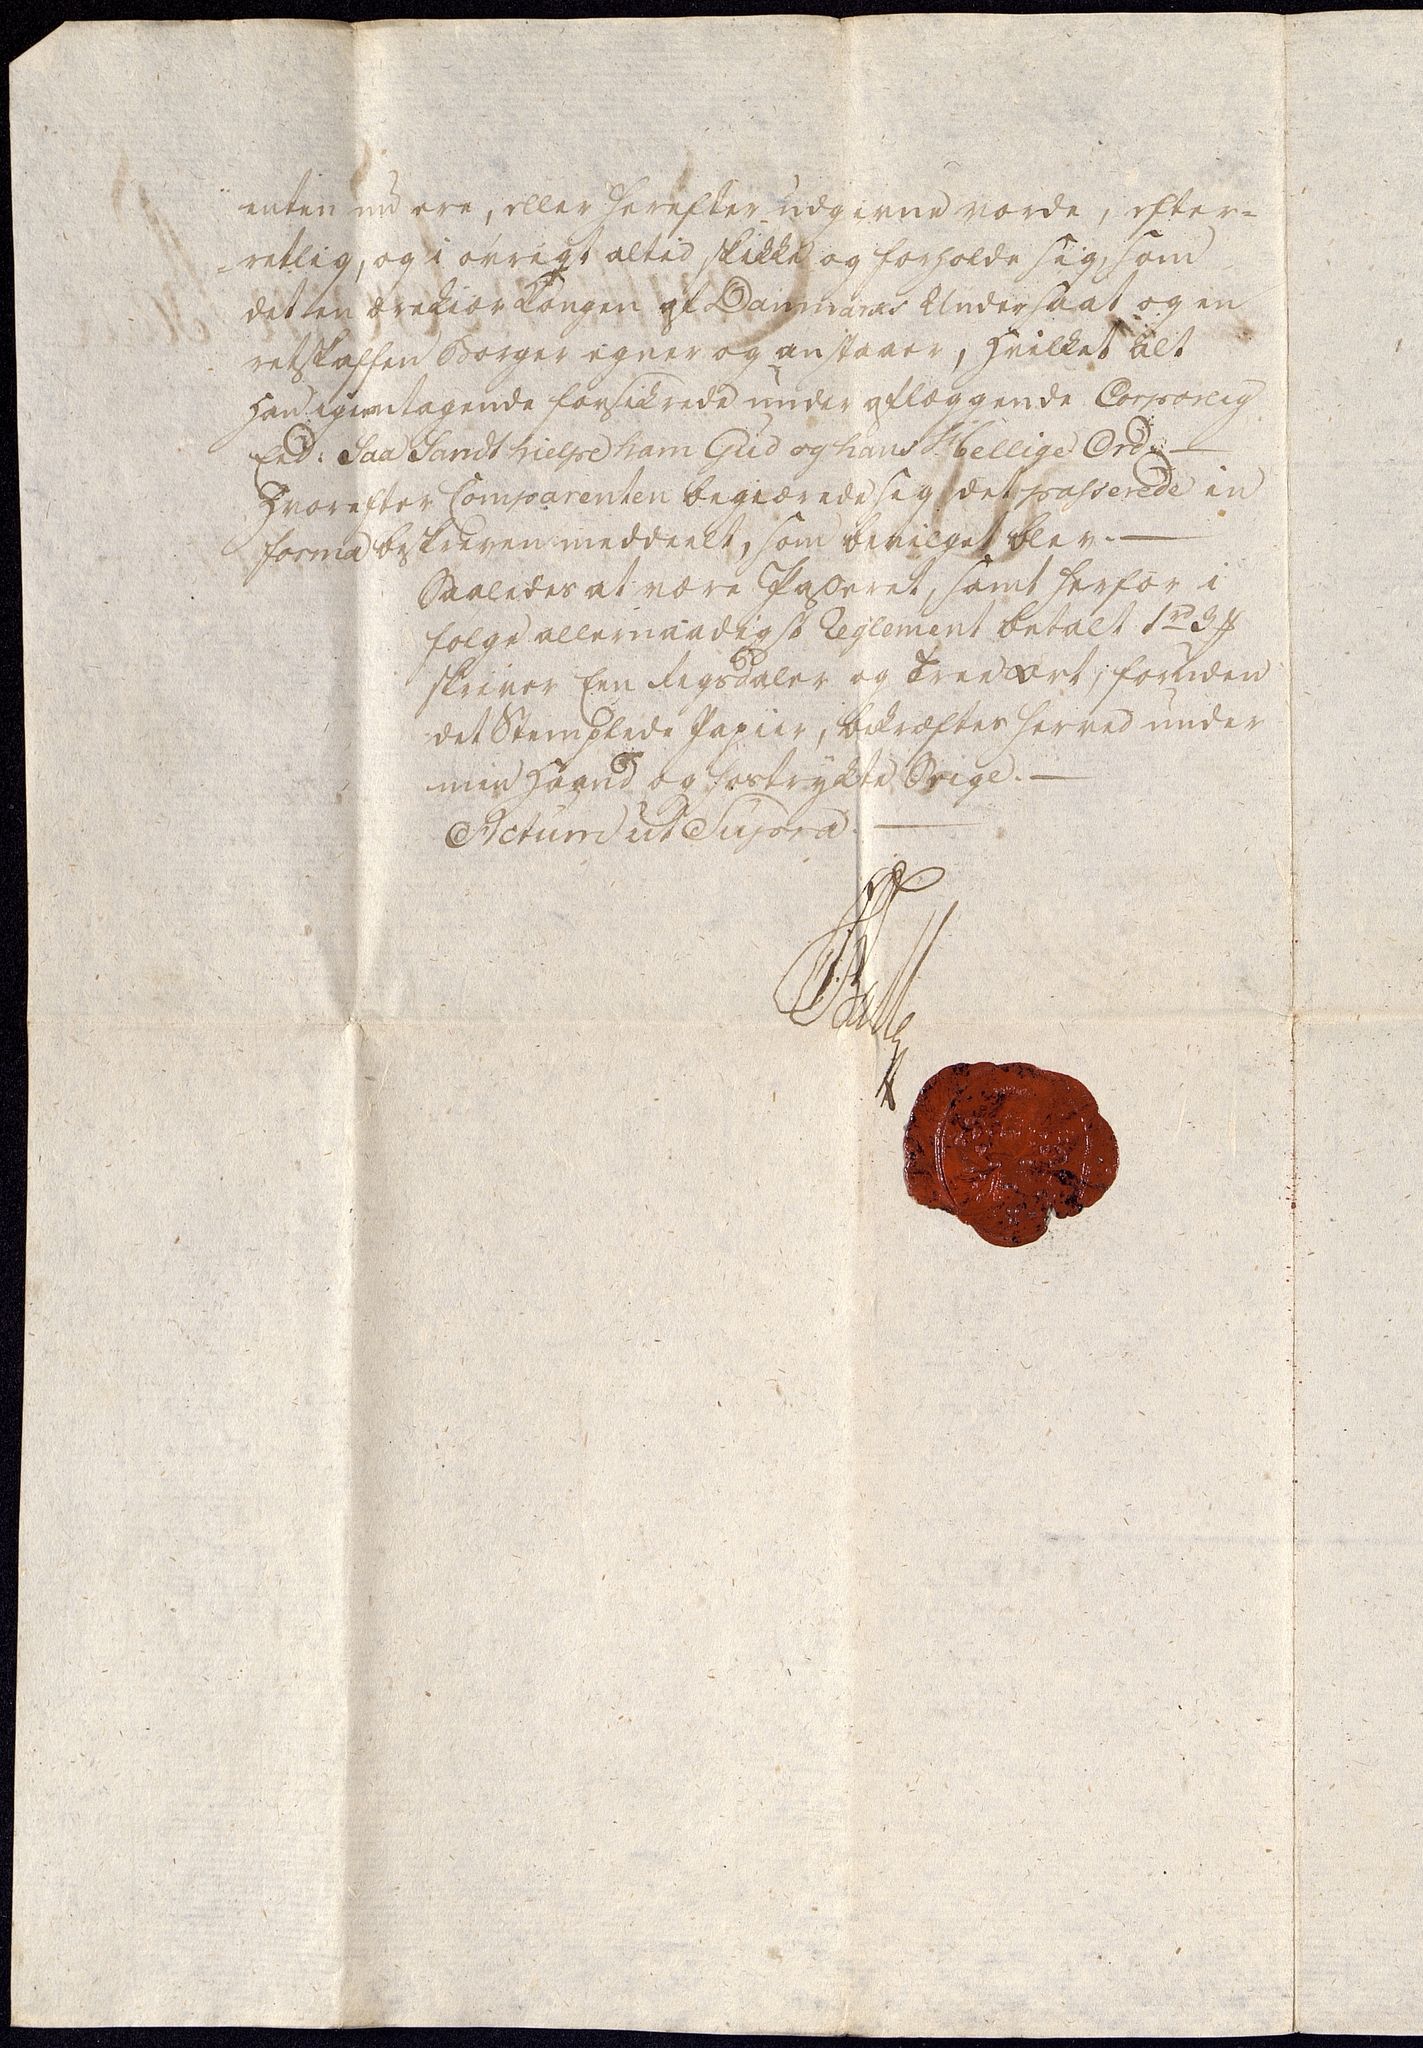 enten nu ere, eller herefter udgivne vorde, efter=
=retlig, og i øvrigt altid skikke og forholde sig, som
det en ærekiær Kongen af Danmarks Undersaat og en
retskaffen Borger egner og anstaaer, hvilket alt
han igientagende forsikrede under aflæggende Corporlig
Eed: Saa Sandt hielpe ham Gud og hans H: hellige Ord. —
Hvorefter Comparenten begiærede sig det passerede in
forma beskreven meddeelt, som bevilget blev. —
Saaledes at være Passeret, samt herfor i
følge allernaadigst Reglement betalt 1rd 3
skriver Een Rigsdaler og Tree ort, foruden
det Stemplede Papiir, bekræftes herved under
min Haand og hostrykte Svige. —
Actum ut Supra. —